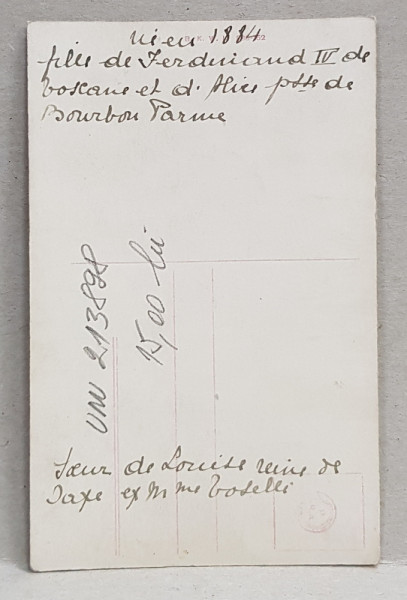 née en 1884
fille de Ferdinand IV de
Toscane et d'Alice psse de
Bourbon Parme
UNV 213898
15,00 lei
Sœur de Louise reine de
Saxe ex Mme Toselli